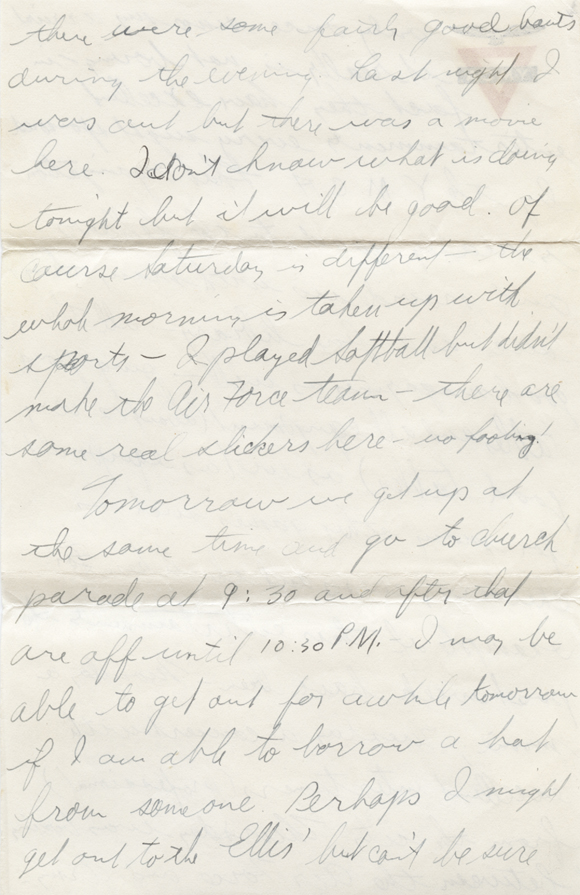 there were some fairly good bouts
during the evening. Last night I
was out but there was a movie
here. I don't know what is doing
tonight but it will be good. Of
course Saturday is different — the
whole morning is taken up with
sports — I played Softball but didn't
make the Air Force team — there are
some real slickers here — no fooling!
Tomorrow we get up at
the same time and go to church
parade at 9:30 and after that
are off until 10:30 P.M. I may be
able to get out for awhile tomorrow
if I am able to borrow a hat
from someone. Perhaps I might
get out to the Ellis' but can't be sure